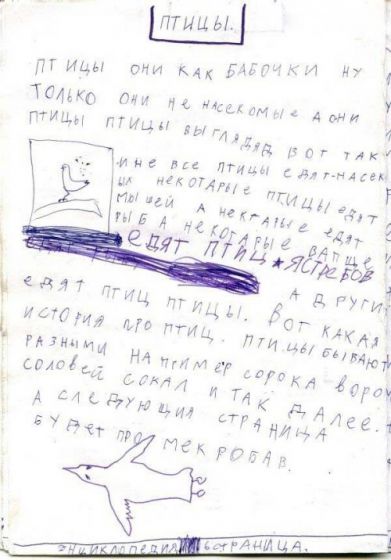 ПТИЦЫ.
ПТИЦЫ ОНИ КАК БАБОЧКИ НУ
ТОЛЬКО ОНИ НЕ НАСЕКОМЫЕ А ОНИ
ПТИЦЫ ПТИЦЫ ВЫГЛЯДЯД ВОТ ТАК
И НЕ ВСЕ ПТИЦЫ ЕДЯТ-НАСЕК
ЫХ НЕКОТАРЫЕ ПТИЦЫ ЕДЯТ
МЫШЕЙ А НЕКТАРЫЕ ЕДЯТ
РЫБА НЕКОТАРЫЕ ВАПЩЕ
ЕДЯТ ПТИЦ ЯСТРЕБОВ
А ДРУГИ
ЕДЯТ ПТИЦ ПТИЦЫ. ВОТ КАКАЯ
ИСТОРИЯ ПРО ПТИЦ. ПТИЦЫ БЫВАЮТ
РАЗНЫМИ НАПРИМЕР СОРОКА ВОРОН
СОЛОВЕЙ СОКАЛ И ТАК ДАЛЕЕ.
А СЛЕДУЮЩИЯ СТРАНИЦА
БУДЕТ ПРО МЕКРОБАВ.
ЭНЦИКЛОПЕДИЯ 6 СТРАНИЦА.